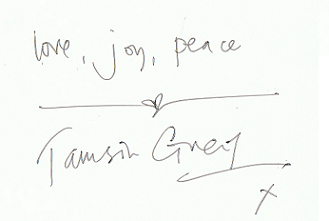 love, joy, peace
Tamsin Greig
x